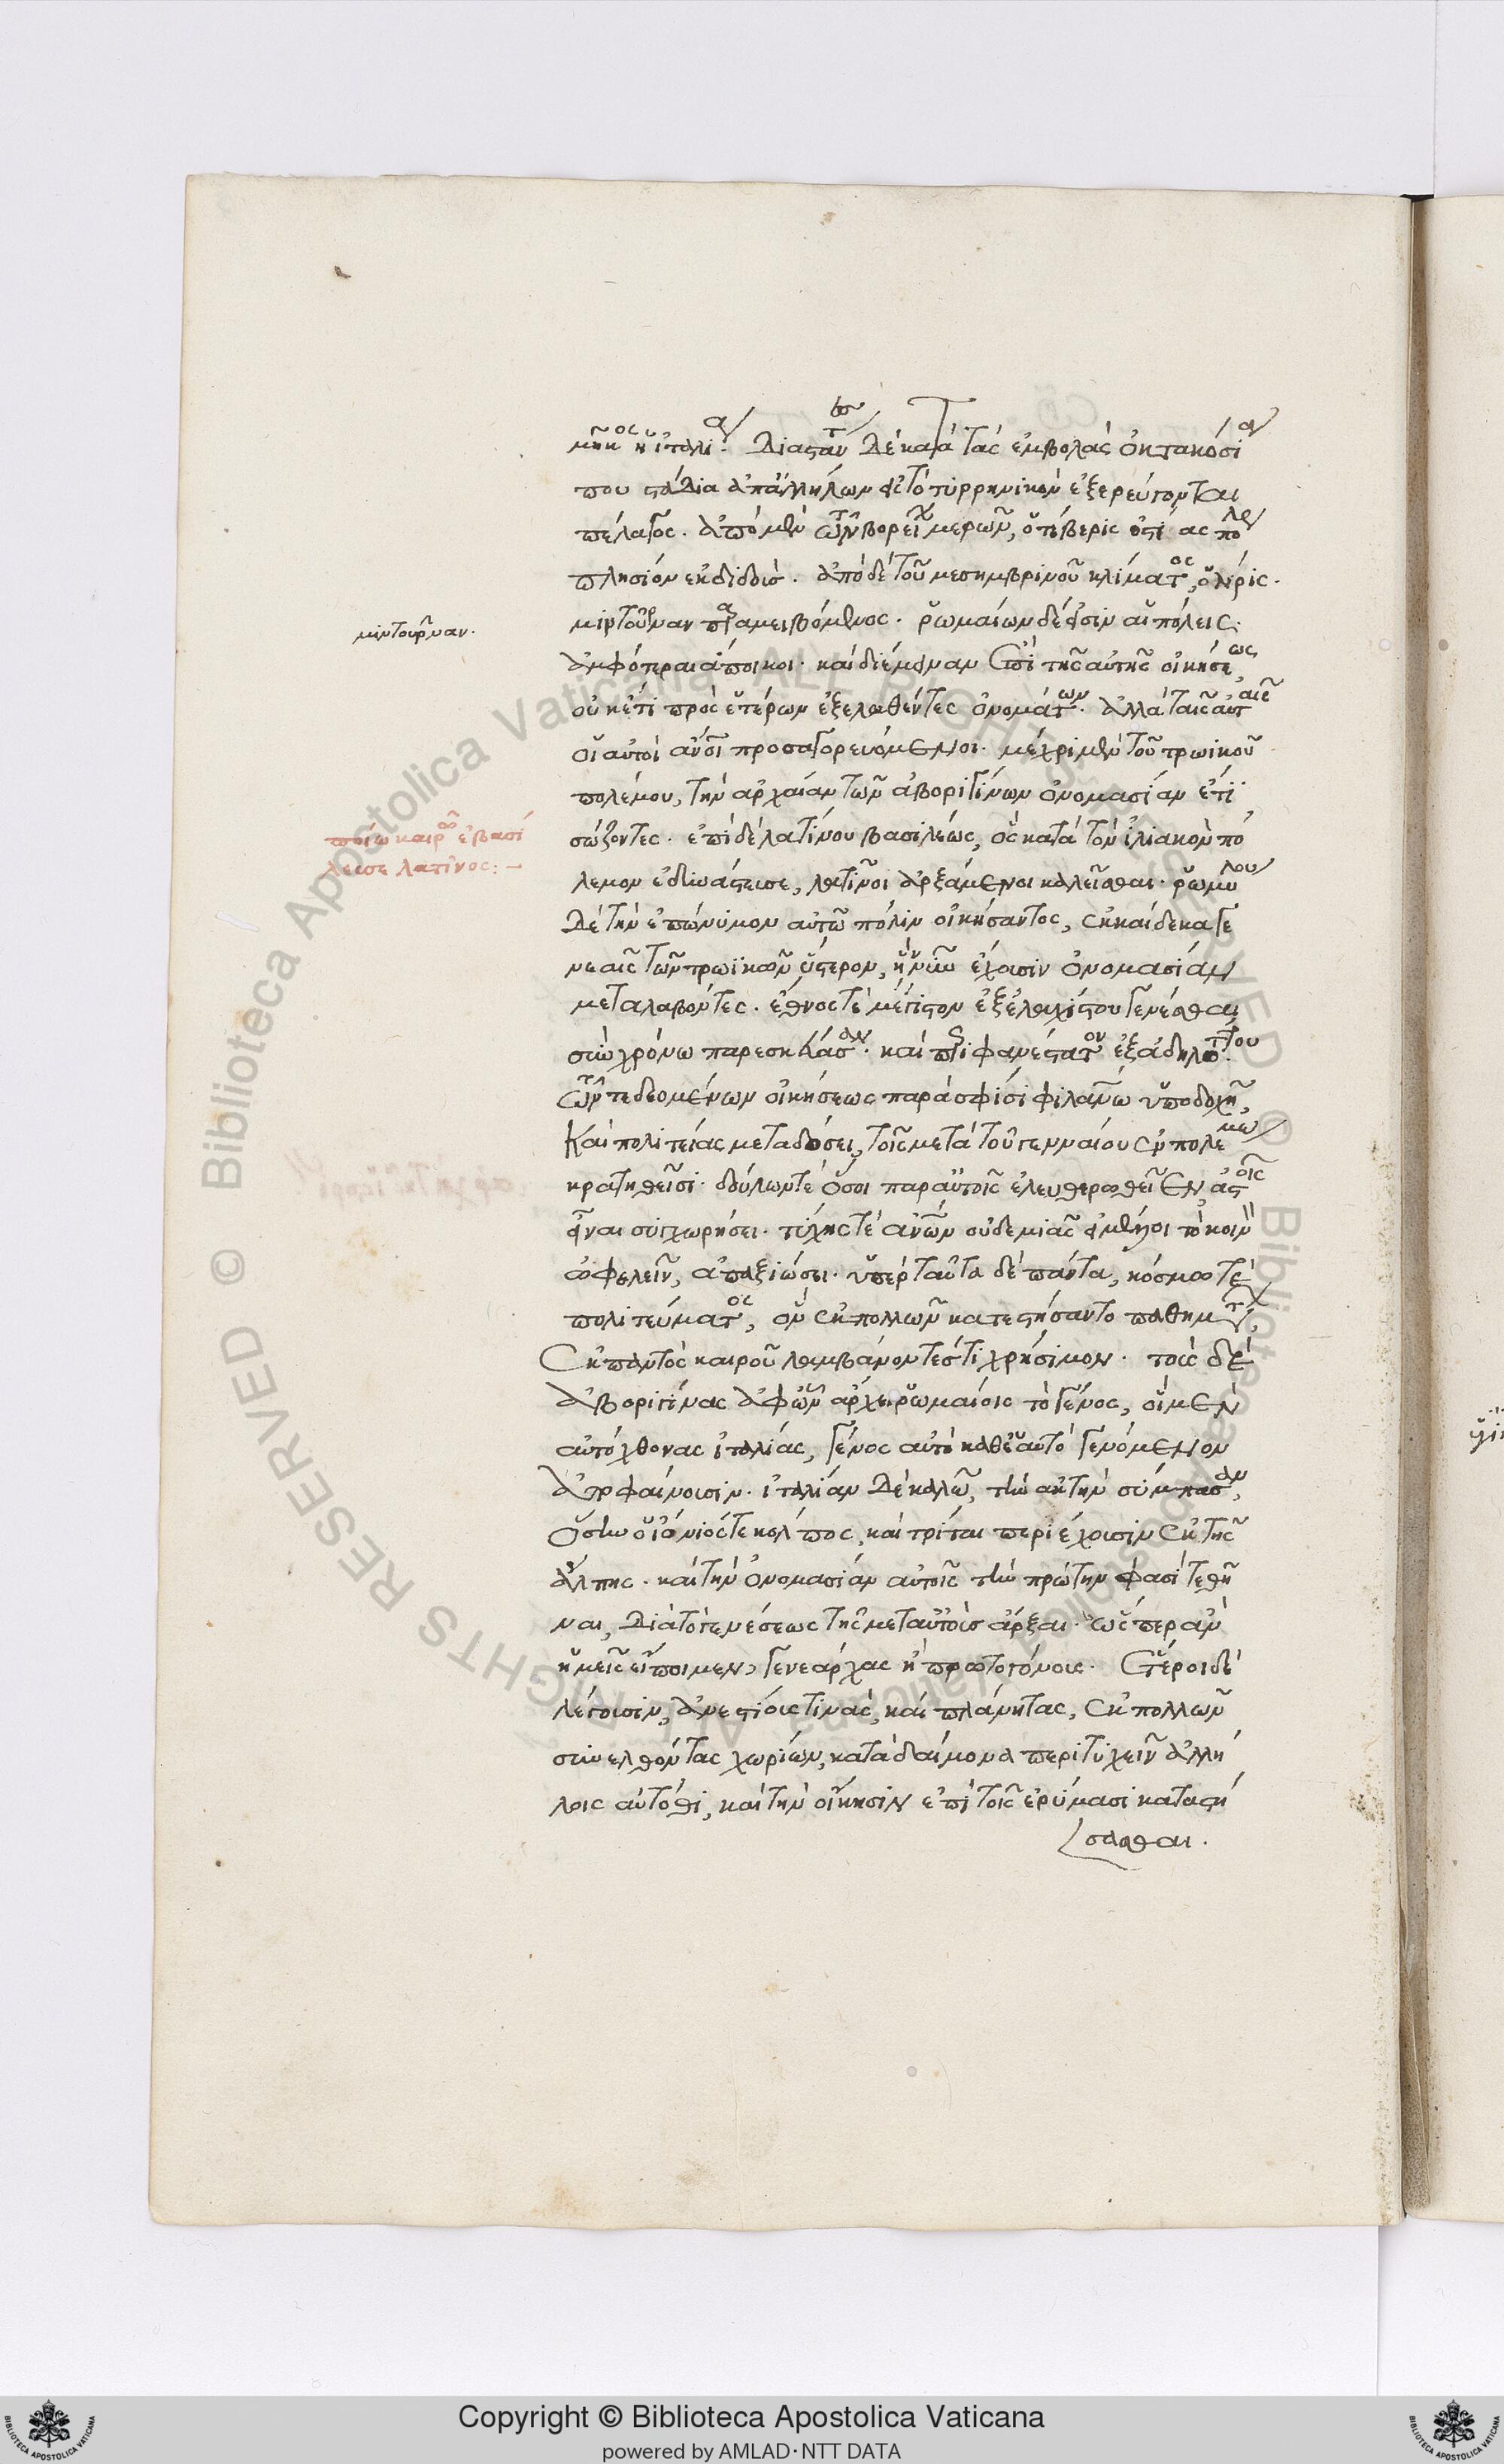 μῆκος ἡ ἰταλία. Διαστάντες δὲ κατὰ τὰς ἐμβολὰς ὀκτακόσια
που στάδια ἀπ' ἀλλήλων εἰς τὸ τυρρηνικὸν ἐξερεύγονται
πέλαγος. ἀπὸ μὲν τῶν βορείων μερῶν, ὁ τίβερις ἐπὶ ας πόλεως
πλησίον ἐκδιδοὺς. ἀπὸ δὲ τοῦ μεσημβρινοῦ κλίματος, ὁ λίρις.
μιντοῦρναν παραμειβόμενος. ῥωμαίων δέ εἰσιν αἱ πόλεις
μιντοῦρναν.
ἀμφότεραι ἄποικοι. καὶ διέμειναν ἐπὶ τῆς αὐτῆς οἰκήσεως
οὐκέτι πρὸς ἑτέρων ἐξελαθέντες ὀνομάτων. ἀλλὰ ταῖς αὐταῖς
οἱ αὐτοὶ ἄνοι προσαγορευόμενοι. μέχρι μὲν τοῦ τρωικοῦ
πολέμου, τὴν ἀρχαίαν τῶν ἀβοριγίνων ὀνομασίαν ἔτι
σώζοντες. ἐπὶ δὲ λατίνου βασιλέως, ὃς κατὰ τὸν ἰλιακὸν πό
ποίω καιρῶ ἐβασί
λευσε λατῖνος:
λεμον ἐδυνάστευσε, λατῖνοι ἀρξάμενοι καλεῖσθαι. ῥωμύλου
δὲ τὴν ἐπώνυμον αὐτῶ πόλιν οἰκήσαντος, ἐκκαίδεκα γε
νεαῖς τῶν τρωϊκῶν ὕστερον, ἣν νῦν ἔχουσιν ὀνομασίαν
μεταλαβόντες. ἔθνος τὲ μέγιστον ἐξ ἐλαχίστου γενέσθαι
σὺν χρόνω παρεσκεύασαν. καὶ περιφανέστατον ἐξ ἀδηλοτάτου
τῶν τε δεομένων οἰκήσεως παρὰ σφίσι φιλανω ὑποδοχῆ,
καὶ πολιτείας μεταδόσει, τοῖς μετὰ τοῦ γενναίου ἐν πολέμω
κρατηθεῖσι. δούλων τὲ ὅσοι παρ' αὐτοῖς ἐλευθερωθεῖεν ἀστοῖς
εἶναι συγχωρήσει. τύχης τὲ ἀνων οὐδεμιᾶς εἰ μέλλοι τὸ κοινὸν
ὠφελεῖν, ἀπαξιώσει. ὑπὲρ ταῦτα δὲ πάντα, κόσμω τὲ
πολιτεύματος, ὃν ἐκ πολλῶν κατεστήσαντο παθημάτων,
ἐκ παντὸς καιροῦ λαμβάνοντές τι χρήσιμον. τοὺς δὲ
ἀβοριγίνας ἀφ' ὧν ἄρχει ῥωμαίοις τὸ γένος, οἱ μὲν
αὐτόχθονας ἰταλίας, γένος αὐτὸ καθ' ἑαυτὸ γενόμενον
ἀποφαίνουσιν. ἰταλίαν δὲ καλῶ, τὴν ἀκτὴν σύμπασαν,
ὅσην ὁ ἰόνιός τε κόλπος, καὶ τρίται περιέχουσιν ἐκ τῆς
ἄλπης. καὶ τὴν ὀνομασίαν αὐτοῖς τὴν πρώτην φασὶ τεθῆ
ναι, διὰ τὸ γενέσεως τῆς μετ' αὐτοὺς ἄρξαι. ὥσπερ ἂν
ἡμεῖς εἴποιμεν, γενεάρχας ἢ πρωτογόνους. ἕτεροι δὲ
λέγουσιν, ἀνεστίους τινὰς, καὶ πλάνητας, ἐκ πολλῶν
συνελθόντας χωρίων, κατὰ δαίμονα περιτυχεῖν ἀλλή
λοις αὐτόθι, καὶ τὴν οἴκησιν ἐπὶ τοῖς ἐρύμασι καταστή
σασθαι.
© Biblioteca Apostolica Vaticana ALL RIGHTS RESERVED
Copyright © Biblioteca Apostolica Vaticana
powered by AMLAD·NTT DATA